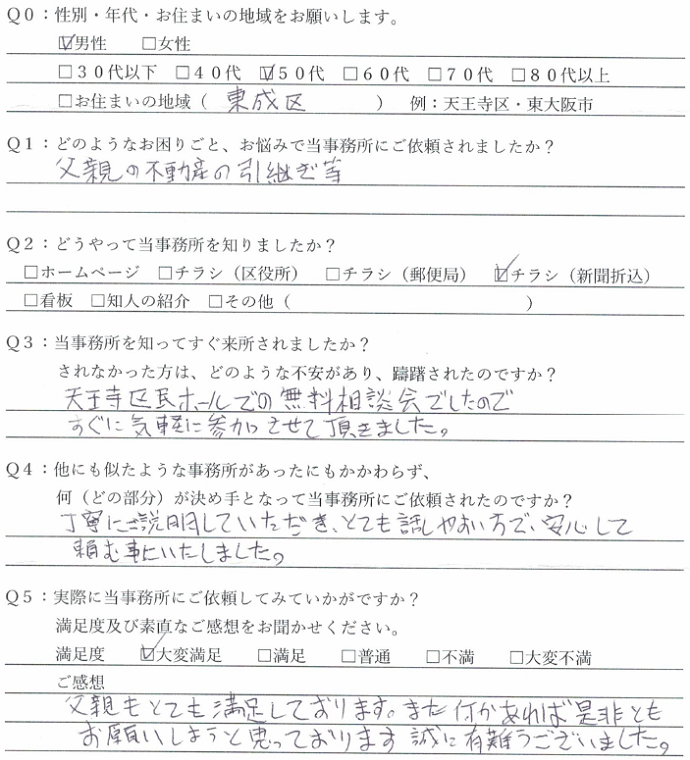 Q0：性別・年代・お住まいの地域をお願いします。
☑男性　□女性
□30代以下　□40代　☑50代　□60代　□70代　□80代以上
□お住まいの地域（　東成区　）　例：天王寺区・東大阪市
Q1：どのようなお困りごと、お悩みで当事務所にご依頼されましたか？
父親の不動産の引継ぎ等
Q2：どうやって当事務所を知りましたか？
□ホームページ　□チラシ（区役所）　□チラシ（郵便局）　☑チラシ（新聞折込）
□看板　□知人の紹介　□その他（　　　）
Q3：当事務所を知ってすぐ来所されましたか？
されなかった方は、どのような不安があり、躊躇されたのですか？
天王寺区民ホールでの無料相談会でしたので
すぐに気軽に参加させて頂きました。
Q4：他にも似たような事務所があったにもかかわらず、
何（どの部分）が決め手となって当事務所にご依頼されたのですか？
丁寧にご説明していただき、とても話しやすい方で、安心して
頼む事にいたしました。
Q5：実際に当事務所にご依頼してみていかがですか？
満足度及び素直なご感想をお聞かせください。
満足度　☑大変満足　□満足　□普通　□不満　□大変不満
ご感想
父親もとても満足しております。また何かあれば是非とも
お願いしようと思っております 誠に有難うございました。